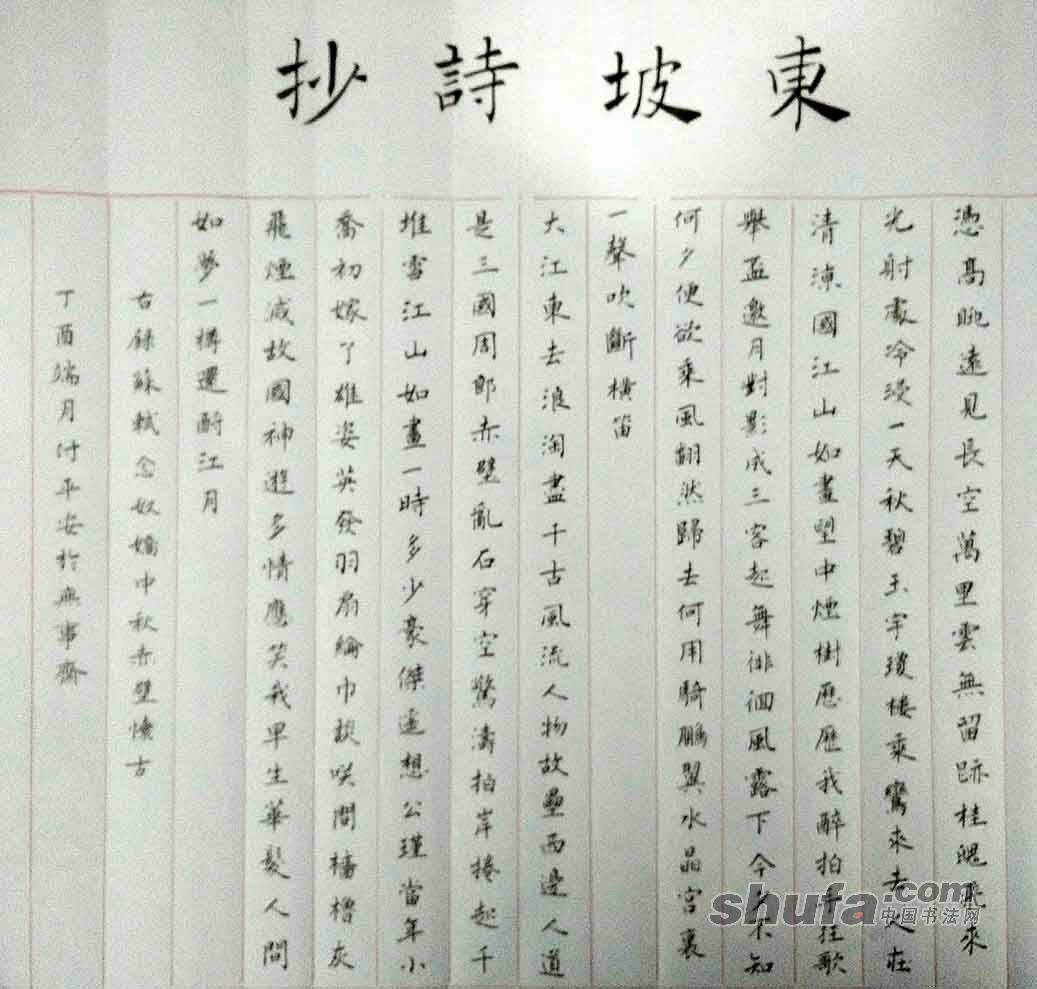 東坡詩抄
憑高眺遠見長空萬里雲無留跡桂魄飛來
光射處冷浸一天秋碧玉宇瓊樓乘鸞來去人在
清涼國江山如畫望中煙樹歷歷我醉拍手狂歌
舉盃邀月對影成三客起舞徘徊風露下今夕不知
何夕便欲乘風翻然歸去何用騎鵬翼水晶宮裏
一聲吹斷橫笛
大江東去浪淘盡千古風流人物故壘西邊人道
是三國周郎赤壁亂石穿空驚濤拍岸捲起千
堆雪江山如畫一時多少豪傑遙想公瑾當年小
喬初嫁了雄姿英發羽扇綸巾談笑間檣櫓灰
飛煙滅故國神遊多情應笑我早生華髮人間
如夢一樽還酹江月
右錄蘇軾念奴嬌中秋赤壁懷古
丁酉端月付平安於無事齋
shufa.com
中国书法网